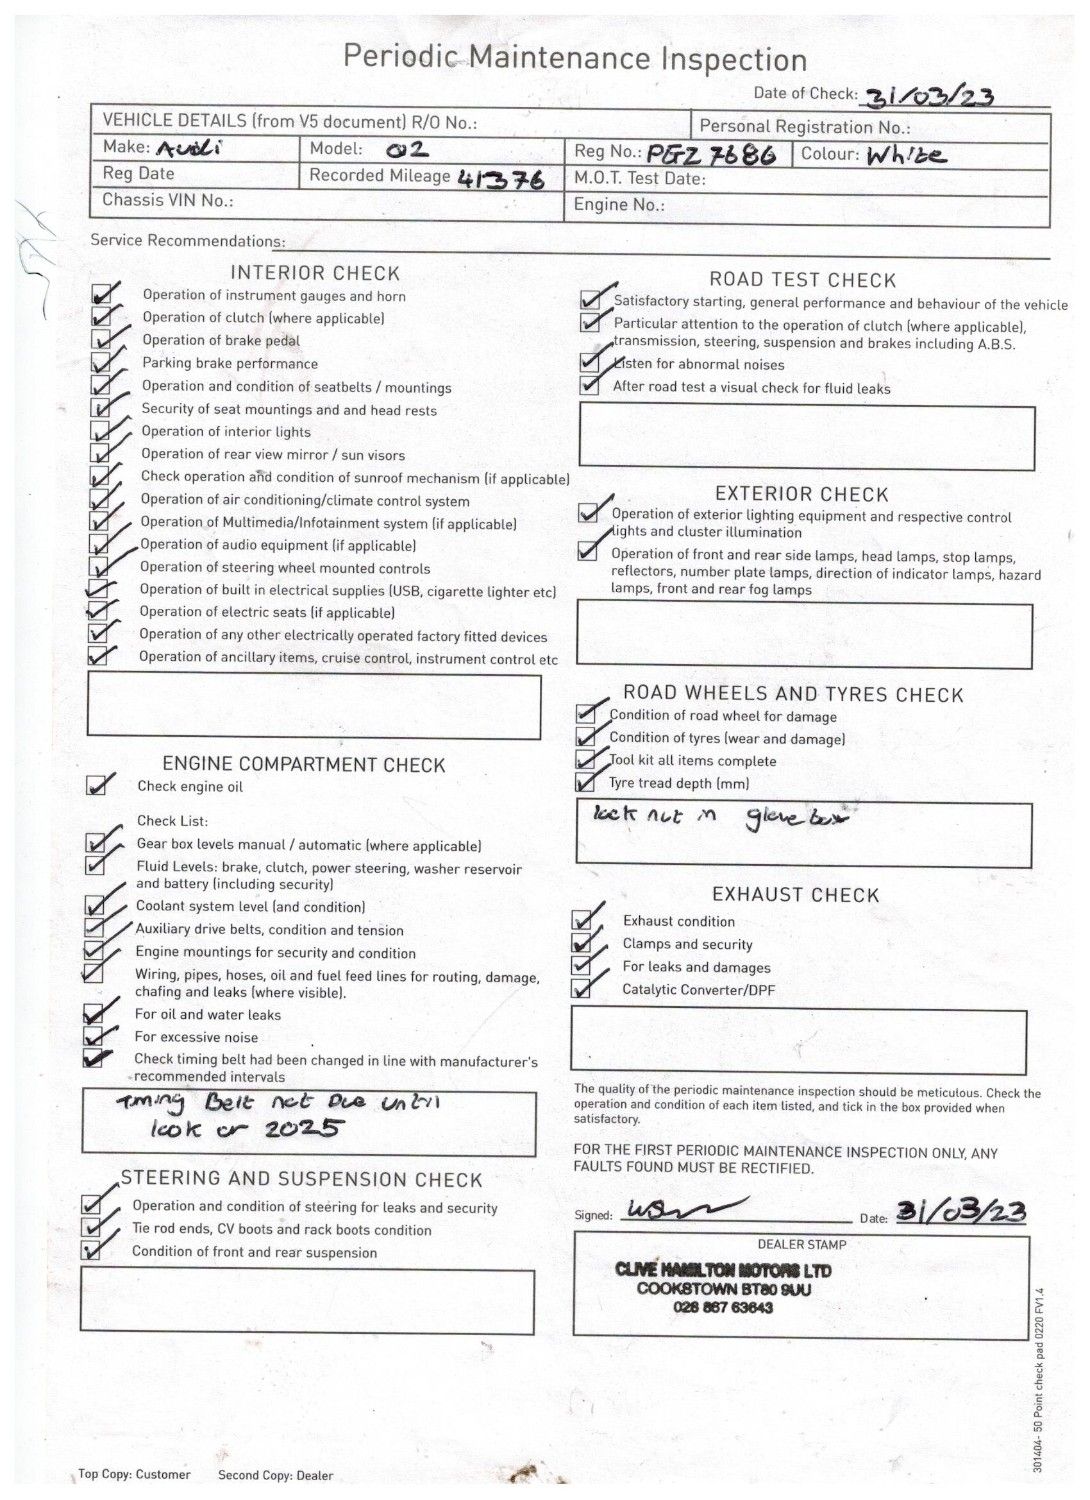 Periodic Maintenance Inspection
Date of Check: 31/03/23
VEHICLE DETAILS (from V5 document) R/O No.:
Personal Registration No.:
Make: Audi
Model: Q2
Reg No.: PGZ 7686
Colour: White
Reg Date
Recorded Mileage 41376
M.O.T. Test Date:
Chassis VIN No.:
Engine No.:
Service Recommendations:
INTERIOR CHECK
Operation of instrument gauges and horn
Operation of clutch (where applicable)
Operation of brake pedal
Parking brake performance
Operation and condition of seatbelts / mountings
Security of seat mountings and and head rests
Operation of interior lights
Operation of rear view mirror / sun visors
Check operation and condition of sunroof mechanism (if applicable)
Operation of air conditioning/climate control system
Operation of Multimedia/Infotainment system (if applicable)
Operation of audio equipment (if applicable)
Operation of steering wheel mounted controls
Operation of built in electrical supplies (USB, cigarette lighter etc)
Operation of electric seats (if applicable)
Operation of any other electrically operated factory fitted devices
Operation of ancillary items, cruise control, instrument control etc
ENGINE COMPARTMENT CHECK
Check engine oil
Check List:
Gear box levels manual / automatic (where applicable)
Fluid Levels: brake, clutch, power steering, washer reservoir
and battery (including security)
Coolant system level (and condition)
Auxiliary drive belts, condition and tension
Engine mountings for security and condition
Wiring, pipes, hoses, oil and fuel feed lines for routing, damage,
chafing and leaks (where visible).
For oil and water leaks
For excessive noise
Check timing belt had been changed in line with manufacturer's
recommended intervals
Timing Belt not Due until
100K or 2025
STEERING AND SUSPENSION CHECK
Operation and condition of steering for leaks and security
Tie rod ends, CV boots and rack boots condition
Condition of front and rear suspension
ROAD TEST CHECK
Satisfactory starting, general performance and behaviour of the vehicle
Particular attention to the operation of clutch (where applicable),
transmission, steering, suspension and brakes including A.B.S.
Listen for abnormal noises
After road test a visual check for fluid leaks
EXTERIOR CHECK
Operation of exterior lighting equipment and respective control
lights and cluster illumination
Operation of front and rear side lamps, head lamps, stop lamps,
reflectors, number plate lamps, direction of indicator lamps, hazard
lamps, front and rear fog lamps
ROAD WHEELS AND TYRES CHECK
Condition of road wheel for damage
Condition of tyres (wear and damage)
Tool kit all items complete
Tyre tread depth (mm)
lock nut in glove box
EXHAUST CHECK
Exhaust condition
Clamps and security
For leaks and damages
Catalytic Converter/DPF
The quality of the periodic maintenance inspection should be meticulous. Check the
operation and condition of each item listed, and tick in the box provided when
satisfactory.
FOR THE FIRST PERIODIC MAINTENANCE INSPECTION ONLY, ANY
FAULTS FOUND MUST BE RECTIFIED.
Signed:
Date: 31/03/23
DEALER STAMP
CLIVE HAMILTON MOTORS LTD
COOKSTOWN BT80 9UU
028 867 63643
301404- 50 Point check pad 0220 FV1.4
Top Copy: Customer
Second Copy: Dealer